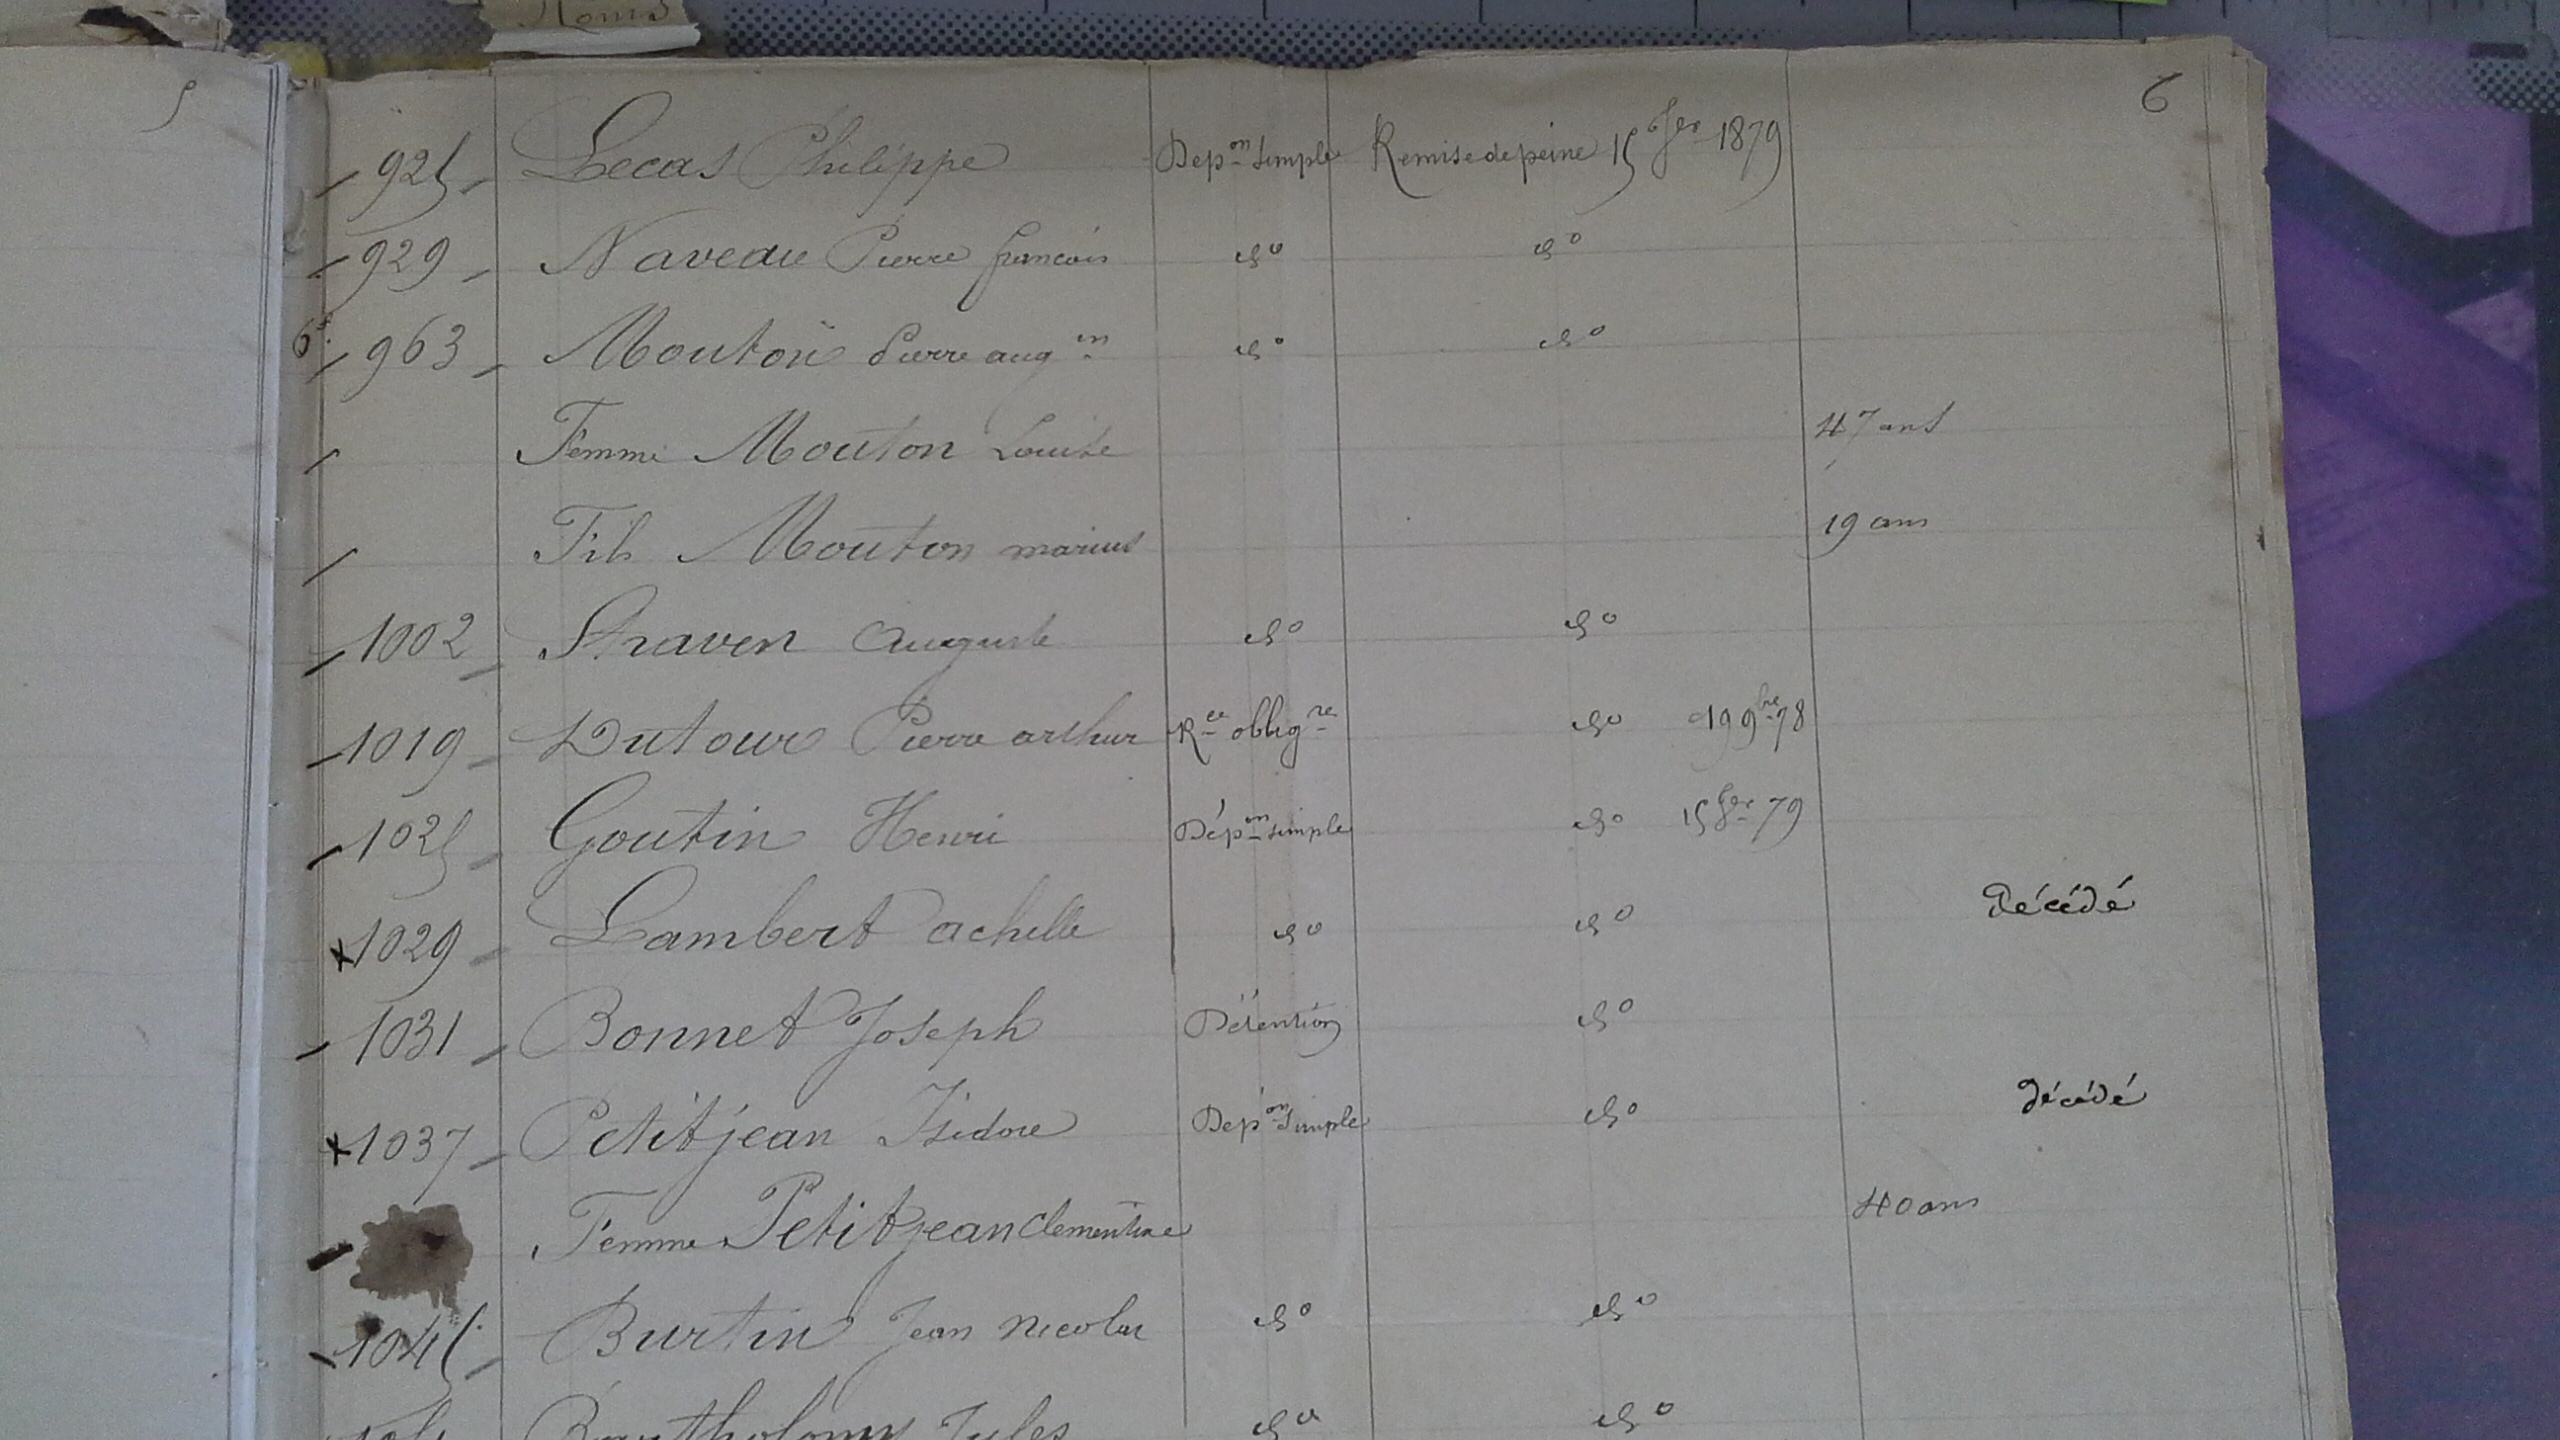 Noms
5
6
925 Lecas Philippe Dep.on simple Remise de peine 15 Jer 1879
929 Naveau Pierre francois do do
6e. 963 Mouton Pierre aug.in do do
Femme Mouton Louise 47 ans
Fils Mouton marius 19 ans
1002 Straven Auguste do do
1019 Dutour Pierre arthur R.ee oblig.re do 19 9bre 78
1025 Goutin Henri Dép.on simple do 15 Jer 79
x 1029 Lambert achille do do Décédé
1031 Bonnet Joseph Détention do
x 1037 Petitjean Isidore Dep.on Simple do décédé
Femme Petitjean Clementine 40 ans
1045 Burtin Jean Nicolas do do
Bartholomy Jules do do